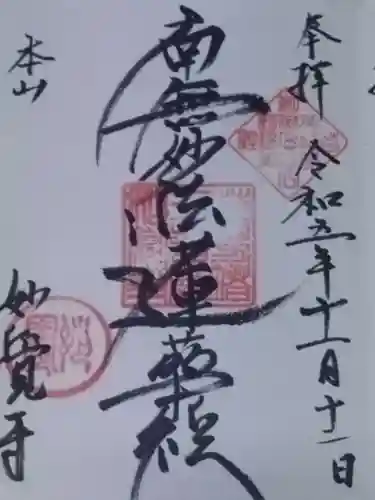 奉拝 令和五年十一月十一日
南無妙法蓮華経
本山
妙覺寺